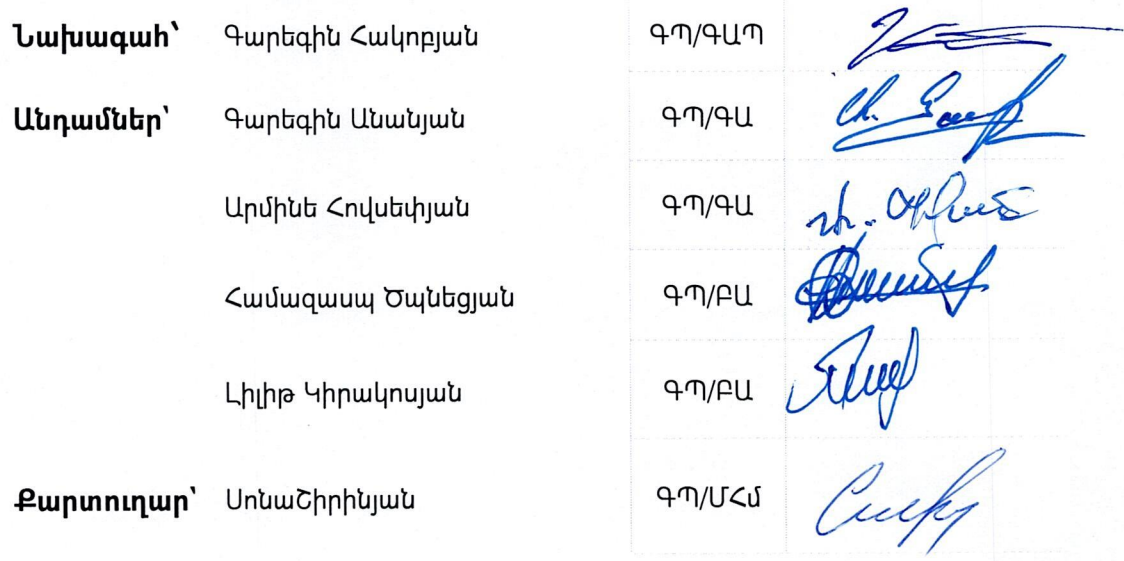 Նախագահ՝ Գարեգին Հակոբյան ԳՊ/ԳԱՊ
Անդամներ՝ Գարեգին Անանյան ԳՊ/ԳԱ
Արմինե Հովսեփյան ԳՊ/ԳԱ
Համազասպ Ծպնեցյան ԳՊ/ԲԱ
Լիլիթ Կիրակոսյան ԳՊ/ԲԱ
Քարտուղար՝ ՍոնաՇիրինյան ԳՊ/ՄՀմ